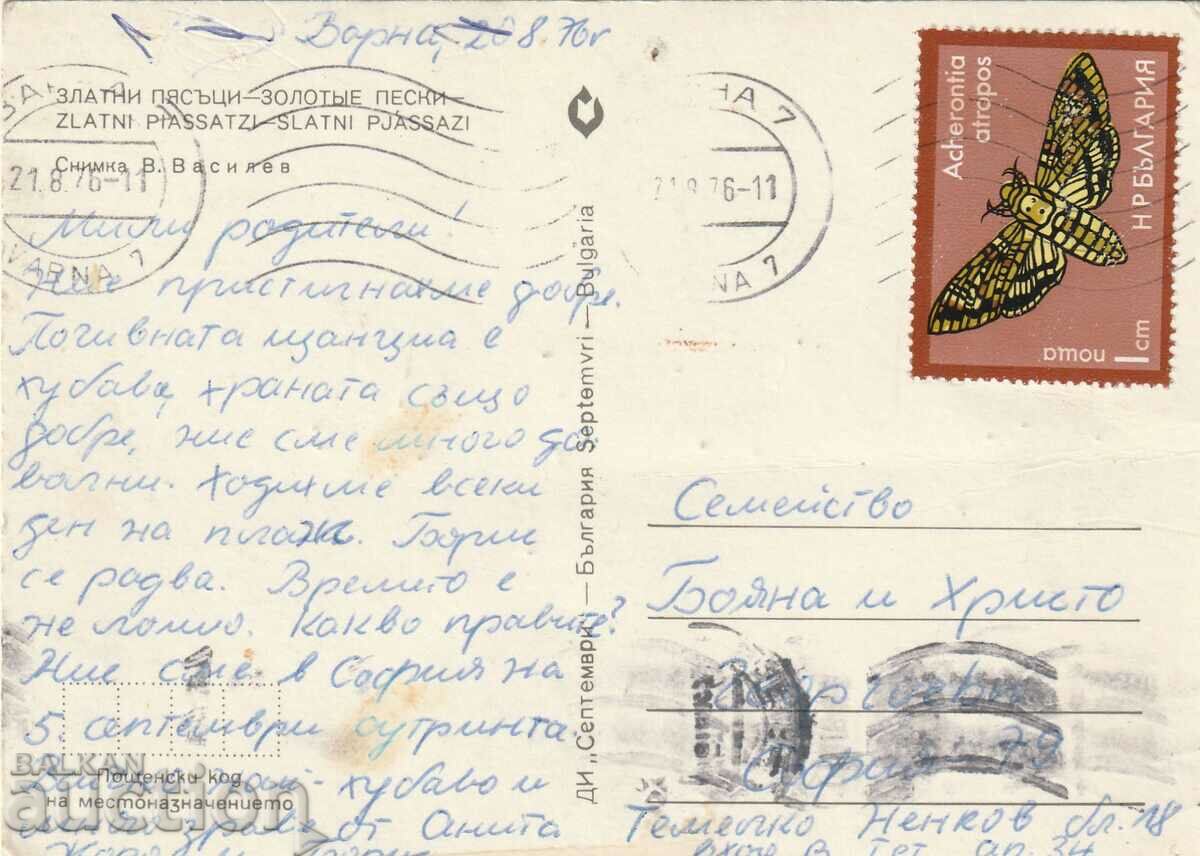 Варна, 20 8. 76г
ЗЛАТНИ ПЯСЪЦИ—ЗОЛОТЫЕ ПЕСКИ—
ZLATNI PIASSATZI—SLATNI PJASSAZI
Снимка В. Василев
21.8.76-11
VARNA 7
Мили родители!
Ние пристигнахме добре.
Почивната станция е
хубава, храната също
добре, ние сме много до
волни. Ходихме всеки
ден на плаж. Борис
се радва. Времето е
не лошо. Какво правите?
Ние сме в София на
5. септември сутринта.
хубаво и
здраве от Анита
BALKAN
auction
Пощенски код
на местоназначението
ДИ „Септември" — България Septemvri — Bulgaria
НА 7
21.8.76-11
NA 7
Acherontia
atropos
Н Р БЪЛГАРИЯ
поща
1 cm
Семейство
Бояна и Христо
София 79
Ненков бл. 18
вход В, ет ап. 34